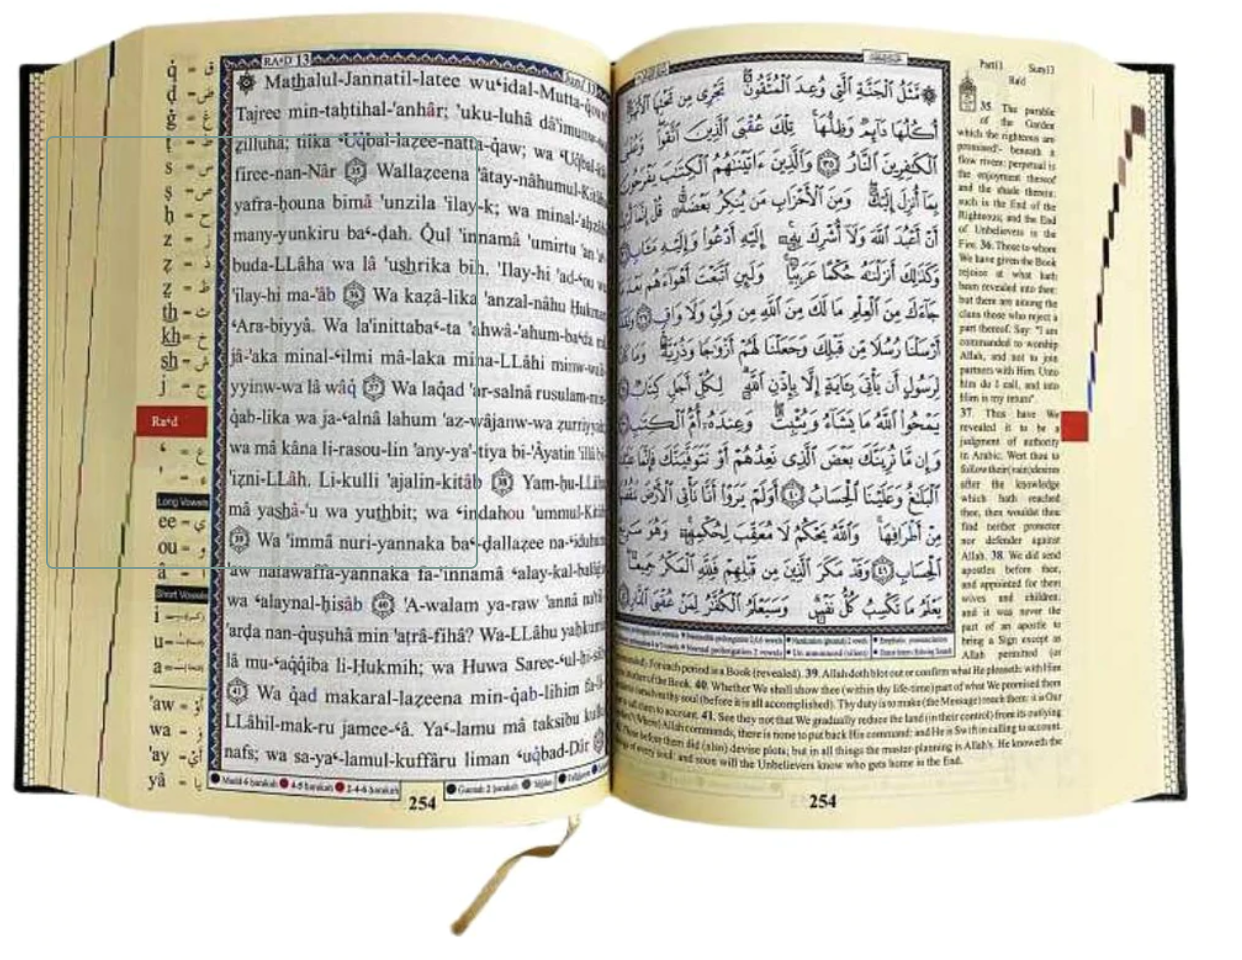 q̇ = ق
ḍ = ض
ġ = غ
ṭ = ط
s = س
ṣ = ص
ḥ = ح
z = ز
ẓ = ذ
ẓ = ظ
th = ث
kh = خ
sh = ش
j = ج
Ra‘d
‘ = ع
' = ء
Long Vowels
ee = ي
ou = و
â = ا
Short Vowels
i =
u =
a =
'aw = أو
wa = و
'ay = أي
yâ = يا
RA‘D 13
Mathalul-Jannatil-latee wu‘idal-Mutta-
Tajree min-taḥtihal-'anhâr; 'uku-luhâ dâ'imunw-
ẓilluhâ; tilka ‘Uq̇bal-laẓee-natta-q̇aw; wa ‘Uq̇bal-
firee-nan-Nâr 35 Wallaẓeena 'âtay-nâhumul-
yafra-ḥouna bimâ 'unzila 'ilay-k; wa minal-'aḥzâbi
many-yunkiru ba‘-ḍah. Q̇ul 'innamâ 'umirtu 'an
buda-LLâha wa lâ 'ushrika bih. 'Ilay-hi 'ad-‘ou
'ilay-hi ma-'âb 36 Wa kaẓâ-lika 'anzal-nâhu
‘Ara-biyyâ. Wa la'inittaba‘-ta 'ahwâ-'ahum-ba‘da
jâ-'aka minal-‘ilmi mâ-laka mina-LLâhi minw-
yyinw-wa lâ wâq̇ 37 Wa laq̇ad 'ar-salnâ rusulam-
q̇ab-lika wa ja-‘alnâ lahum 'az-wâjanw-wa ẓurriyyah
wa mâ kâna li-rasou-lin 'any-ya'-tiya bi-'Âyatin 'illâ
'iẓni-LLâh. Li-kulli 'ajalin-kitâb 38 Yam-ḥu-LLâhu
mâ yashâ-'u wa yuthbit; wa ‘indahou 'ummul-
39 Wa 'immâ nuri-yannaka ba‘-ḍallaẓee na-‘iduhum
'aw natawaffa-yannaka fa-'innamâ ‘alay-kal-balâġu
wa ‘alaynal-ḥisâb 40 'A-walam ya-raw 'annâ
'arḍa nan-q̇uṣuhâ min 'aṭrâ-fihâ? Wa-LLâhu yaḥkumu
lâ mu-‘aq̇q̇iba li-Hukmih; wa Huwa Saree-‘ul-ḥi-sâb
41 Wa q̇ad makaral-laẓeena min-q̇ab-lihim
LLâhil-mak-ru jamee-‘â. Ya‘-lamu mâ taksibu kullu
nafs; wa sa-ya‘-lamul-kuffâru liman ‘uq̇bad-Dâr
254
مَّثَلُ الْجَنَّةِ الَّتِي وُعِدَ الْمُتَّقُونَ تَجْرِي مِن تَحْتِهَا الْأَنْهَارُ
أُكُلُهَا دَائِمٌ وَظِلُّهَا تِلْكَ عُقْبَى الَّذِينَ اتَّقَوا وَّعُقْبَى
الْكَافِرِينَ النَّارُ ٣٥ وَالَّذِينَ ءَاتَيْنَاهُمُ الْكِتَابَ يَفْرَحُونَ
بِمَا أُنزِلَ إِلَيْكَ وَمِنَ الْأَحْزَابِ مَن يُنكِرُ بَعْضَهُ قُلْ إِنَّمَا أُمِرْتُ
أَنْ أَعْبُدَ اللَّهَ وَلَا أُشْرِكَ بِهِ إِلَيْهِ أَدْعُوا وَإِلَيْهِ مَئَابِ
وَكَذَٰلِكَ أَنزَلْنَاهُ حُكْمًا عَرَبِيًّا وَلَئِنِ اتَّبَعْتَ أَهْوَاءَهُم بَعْدَمَا
جَاءَكَ مِنَ الْعِلْمِ مَا لَكَ مِنَ اللَّهِ مِن وَلِيٍّ وَلَا وَاقٍ ٣٧ وَلَقَدْ
أَرْسَلْنَا رُسُلًا مِّن قَبْلِكَ وَجَعَلْنَا لَهُمْ أَزْوَاجًا وَذُرِّيَّةً وَمَا كَانَ
لِرَسُولٍ أَن يَأْتِيَ بِئَايَةٍ إِلَّا بِإِذْنِ اللَّهِ لِكُلِّ أَجَلٍ كِتَابٌ
يَمْحُوا اللَّهُ مَا يَشَاءُ وَيُثْبِتُ وَعِندَهُ أُمُّ الْكِتَابِ
وَإِن مَّا نُرِيَنَّكَ بَعْضَ الَّذِي نَعِدُهُمْ أَوْ نَتَوَفَّيَنَّكَ فَإِنَّمَا عَلَيْكَ
الْبَلَاغُ وَعَلَيْنَا الْحِسَابُ ٤٠ أَوَلَمْ يَرَوْا أَنَّا نَأْتِي الْأَرْضَ نَنقُصُهَا
مِنْ أَطْرَافِهَا وَاللَّهُ يَحْكُمُ لَا مُعَقِّبَ لِحُكْمِهِ وَهُوَ سَرِيعُ
الْحِسَابِ ٤١ وَقَدْ مَكَرَ الَّذِينَ مِن قَبْلِهِمْ فَلِلَّهِ الْمَكْرُ جَمِيعًا
يَعْلَمُ مَا تَكْسِبُ كُلُّ نَفْسٍ وَسَيَعْلَمُ الْكُفَّارُ لِمَنْ عُقْبَى الدَّارِ
Part13 Sura13
Ra'd
35. The parable
of the Garden
which the righteous are
promised!- beneath it
flow rivers: perpetual is
the enjoyment thereof
and the shade therein:
such is the End of the
Righteous; and the End
of Unbelievers is the
Fire. 36. Those to whom
We have given the Book
rejoice at what hath
been revealed unto thee:
but there are among the
clans those who reject a
part thereof. Say: "I am
commanded to worship
Allah, and not to join
partners with Him. Unto
Him do I call, and unto
Him is my return".
37. Thus have We
revealed it to be a
judgment of authority
in Arabic. Wert thou to
follow their (vain) desires
after the knowledge
which hath reached
thee, then wouldst thou
find neither protector
nor defender against
Allah. 38. We did send
apostles before thee,
and appointed for them
wives and children:
and it was never the
part of an apostle to
bring a Sign except as
Allah permitted (or
For each period is a Book (revealed). 39. Allah doth blot out or confirm what He pleaseth: with Him
of the Book. 40. Whether We shall show thee (within thy life-time) part of what We promised them
thy soul (before it is all accomplished). Thy duty is to make (the Message) reach them: it is Our
call them to account. 41. See they not that We gradually reduce the land (in their control) from its outlying
(Where) Allah commands, there is none to put back His command: and He is Swift in calling to account.
before them did (also) devise plots; but in all things the master-planning is Allah's. He knoweth the
of every soul: and soon will the Unbelievers know who gets home in the End.
254